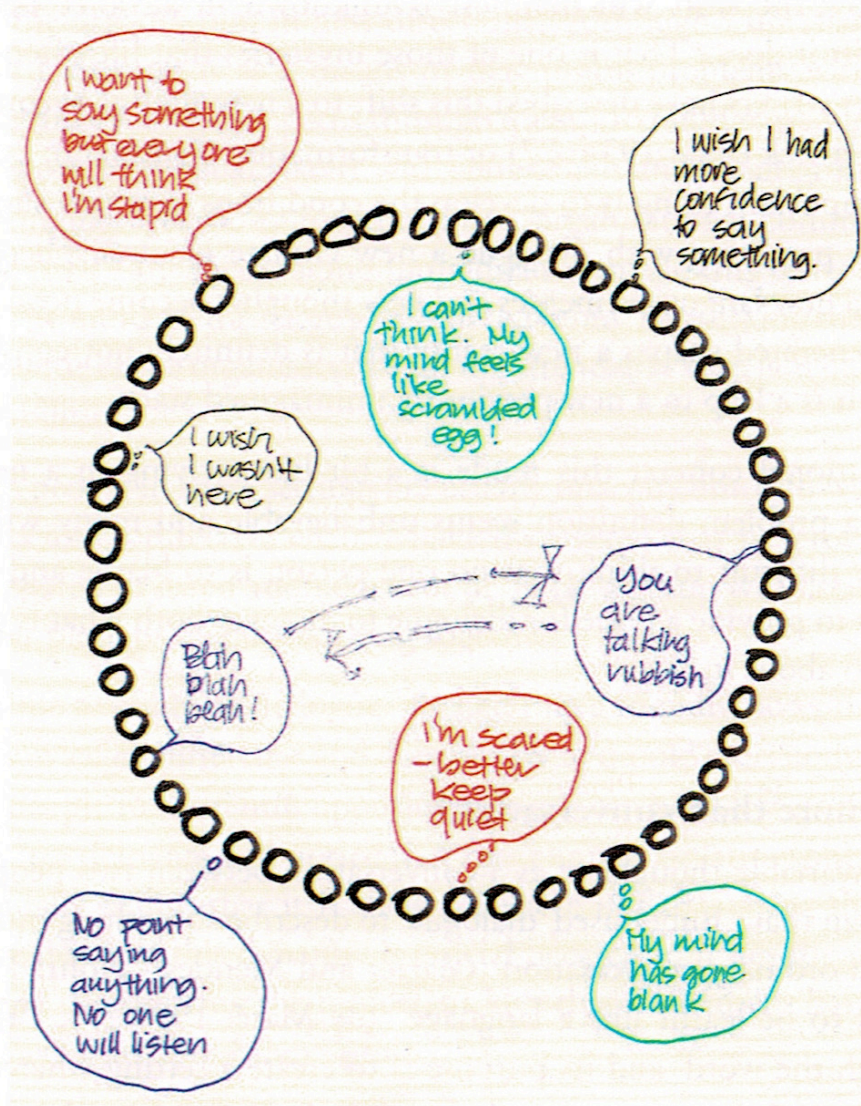 I want to
say something
but everyone
will think
I'm stupid
I wish I had
more
confidence
to say
something.
I can't
think. My
mind feels
like
scrambled
egg!
I wish
I wasn't
here
You
are
talking
rubbish
Blah
blah
blah!
I'm scared
- better
keep
quiet
No point
saying
anything.
No one
will listen
My mind
has gone
blank